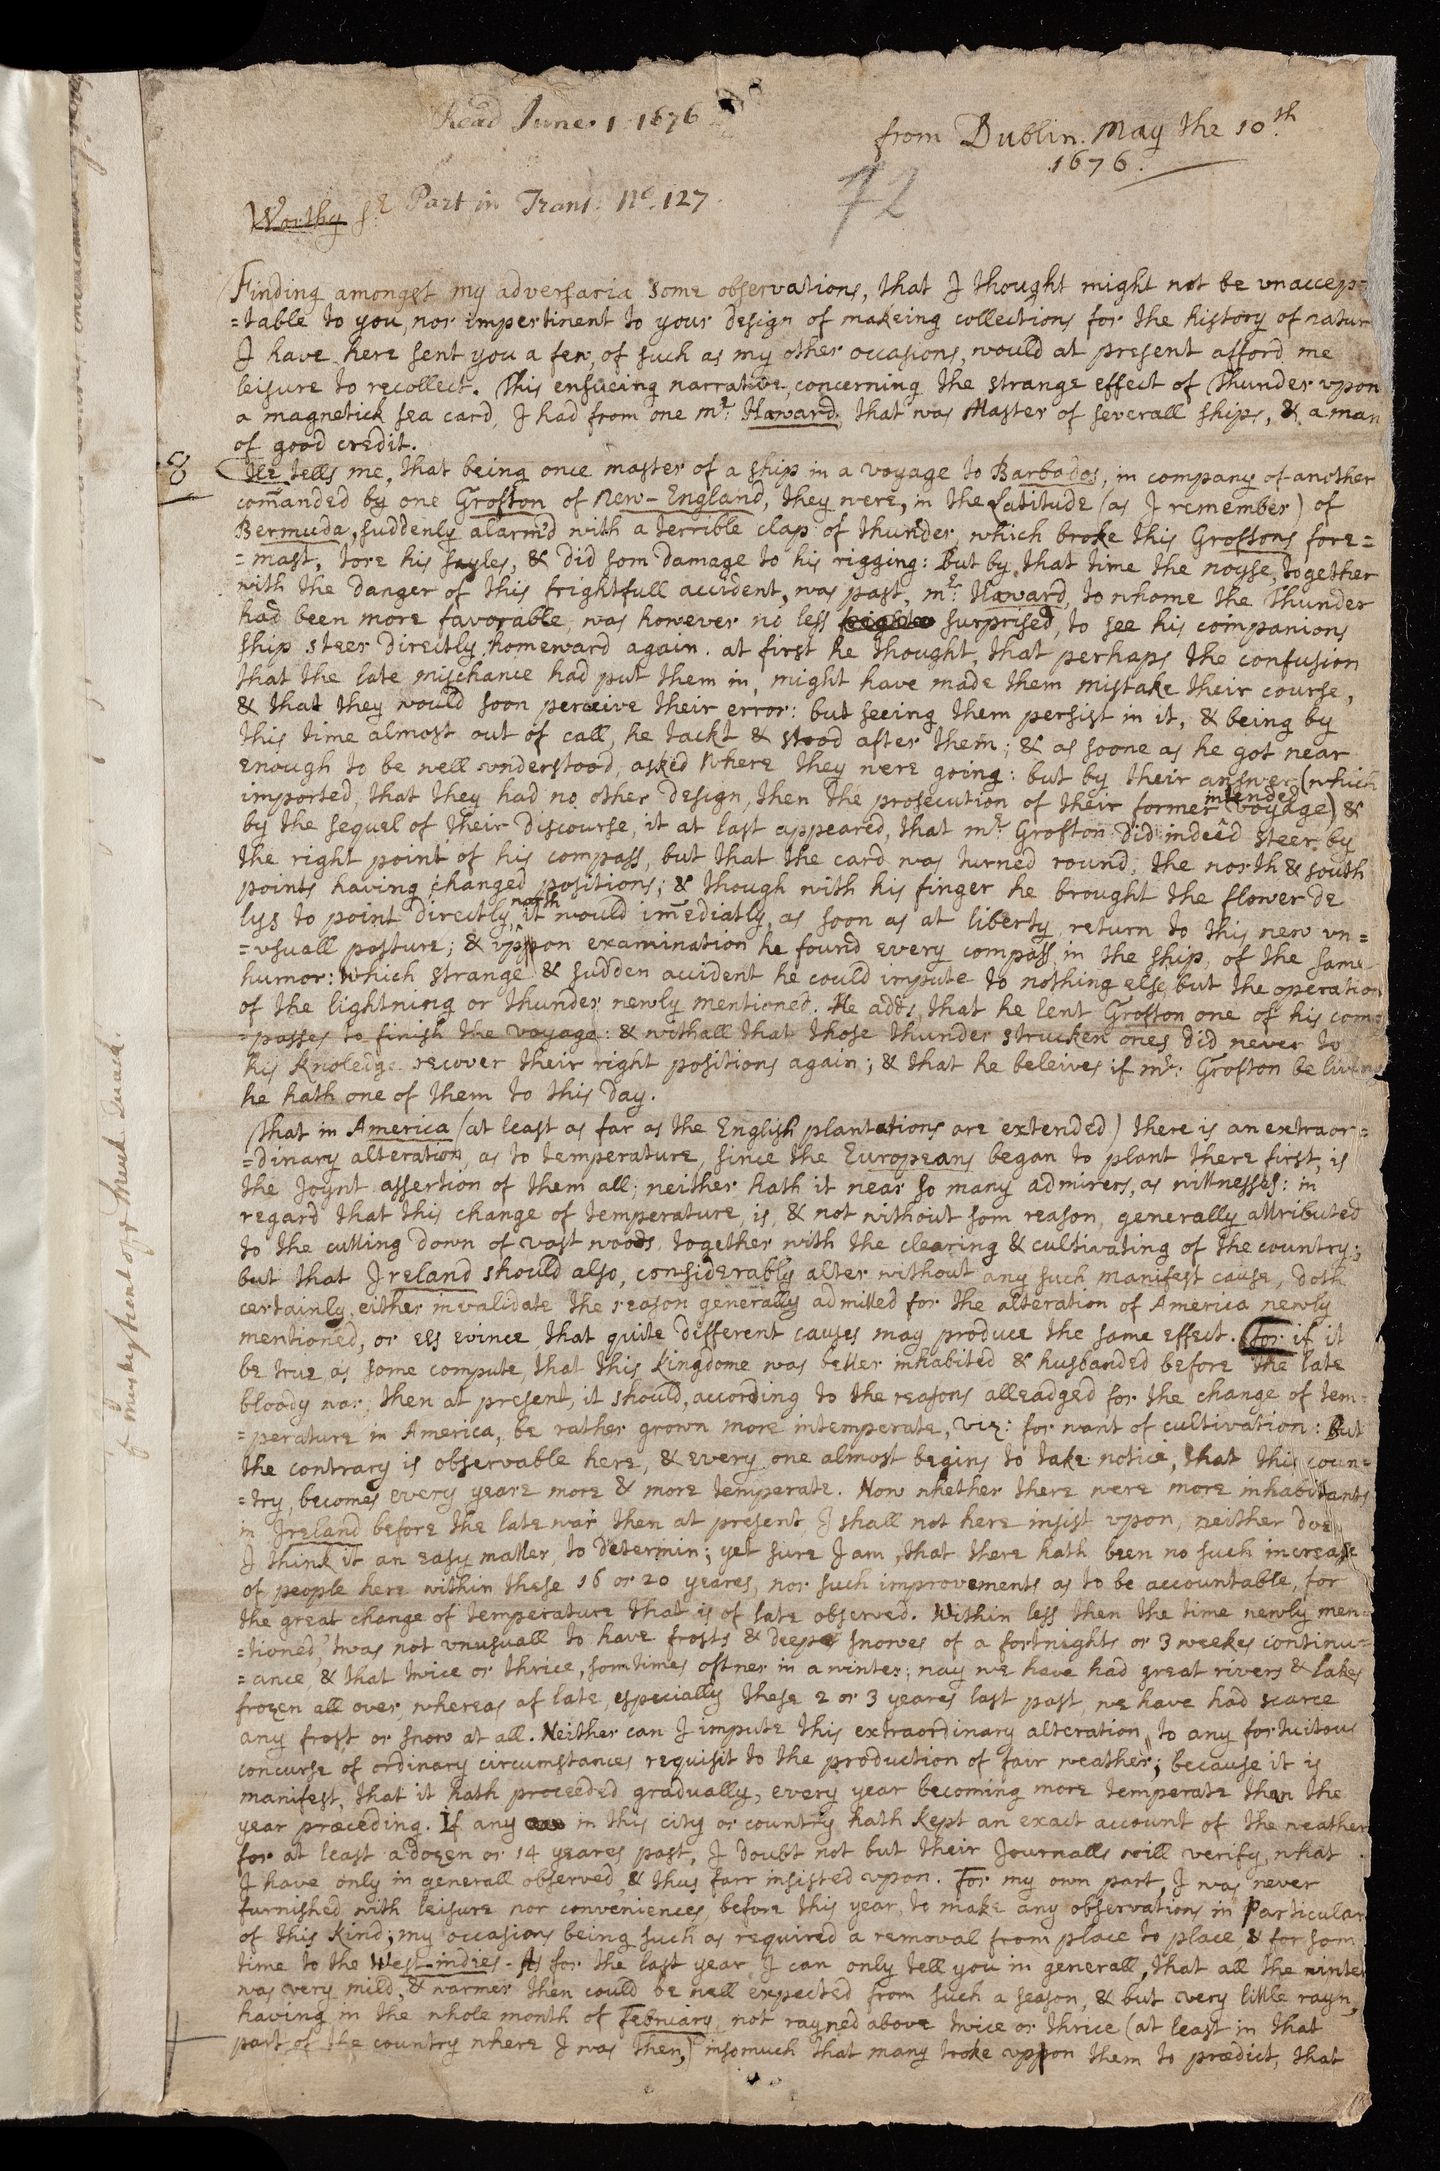 Read June 1 1676
from Dublin. May the 10th
1676.
72
Worthy Sr Part in Trans. No. 127.
Finding amongst my adversaria some observations, that I thought might not be vnaccep=
=table to you, nor impertinent to your design of makeing collections for the history of natur
I have here sent you a few, of such as my other occasions, would at present afford me
leisure to recollect. This ensueing narrative, concerning the strange effect of Thunder vpon
a magnetick sea card, I had from one mr: Haward, that was Master of severall ships, & a man
of good credit.
8
He tells me, that being once master of a ship in a voyage to Barbados, in company of another
com̄anded by one Grofton of New-England, they were, in the Latitude (as I remember) of
Bermuda, suddenly alarm'd with a terrible clap of thunder, which broke this Groftons fore=
=mast, tore his sayles, & did som damage to his rigging: But by that time the noyse, together
with the danger of this frightfull accident, was past, mr: Haward, to whome the Thunder
had been more favorable, was however no less surprised, to see his companions
ship steer directly homeward again. at first he thought, that perhaps the confusion
that the late mischance had put them in, might have made them mistake their course,
& that they would soon perceive their error: but seeing them persist in it, & being by
this time almost out of call, he tackt & stood after them; & as soone as he got near
enough to be well vnderstood, asked where they were going: but by their answer (which
imported, that they had no other design, then the prosecution of their former intended voyage) &
by the sequel of their discourse, it at last appeared, that mr: Grofton did indeed steer by
the right point of his compass, but that the card was turned round; the north & south
points having changed positions; & though with his finger he brought the flower de
lys to point directly north, it would im̄ediatly, as soon as at liberty, return to this new vn=
=vsuall posture; & vpon examination he found every compass in the ship, of the same
humor: which strange & sudden accident he could impute to nothing else but the operation
of the lightning or thunder newly mentioned. He adds, that he lent Grofton one of his com=
=passes to finish the voyage: & withall that those thunder strucken ones did never to
his knoledge recover their right positions again; & that he beleives if mr: Grofton be living
he hath one of them to this day.
That in America (at least as far as the English plantations are extended) there is an extraor=
=dinary alteration, as to temperature, since the Europeans began to plant there first, is
the joynt assertion of them all; neither hath it near so many admirers, as wittnesses: in
regard that this change of temperature, is, & not without som reason, generally attributed
to the cutting down of vast woods, together with the clearing & cultivating of the country;
but that Ireland should also, considerably alter without any such manifest cause, doth
certainly either invalidate the reason generally admitted for the alteration of America newly
mentioned, or els evince, that quite different causes may produce the same effect. For if it
be true as some compute, that this Kingdome was better inhabited & husbanded before the late
bloody war, then at present, it should, according to the reasons alleadged for the change of tem=
=perature in America, be rather grown more intemperate, viz: for want of cultivation: But
the contrary is observable here, & every one almost begins to take notice, that this coun=
=try, becomes every yeare more & more temperate. Now whether there were more inhabitants
in Ireland before the late war then at present, I shall not here insist vpon, neither doe
I think it an easy matter, to determin; yet sure I am, that there hath been no such increase
of people here within these 16 or 20 yeares, nor such improvements as to be accountable, for
the great change of temperature that is of late observed. Within less then the time newly men=
=tioned, twas not vnusuall to have frosts & deepe snowes of a fortnights or 3 weekes continu=
=ance, & that twice or thrice, somtimes oftner in a winter; nay we have had great rivers & lakes
frozen all over, whereas of late, especially these 2 or 3 yeares last past, we have had scarce
any frost or snow at all. Neither can I impute this extraordinary alteration, to any fortuitous
concurse of ordinary circumstances requisit to the production of fair weather; because it is
manifest, that it hath proceeded gradually, every year becoming more temperate then the
year præceding. If any in this city or country hath kept an exact account of the weather
for at least a dozen or 14 yeares past, I doubt not but their Journalls will verify what
I have only in generall observed, & thus farr insisted vpon. For my own part, I was never
furnished with leisure nor conveniences, before this year, to make any observations in particular
of this kind; my occasions being such as required a removal from place to place & for som
time to the West-indies. As for the last year, I can only tell you in generall, that all the winter
was very mild, & warmer then could be well expected from such a season, & but very little rayn,
having in the whole month of February not rayned above twice or thrice (at least in that
part of the country where I was then,) insomuch that many tooke vpon them to prædict, that